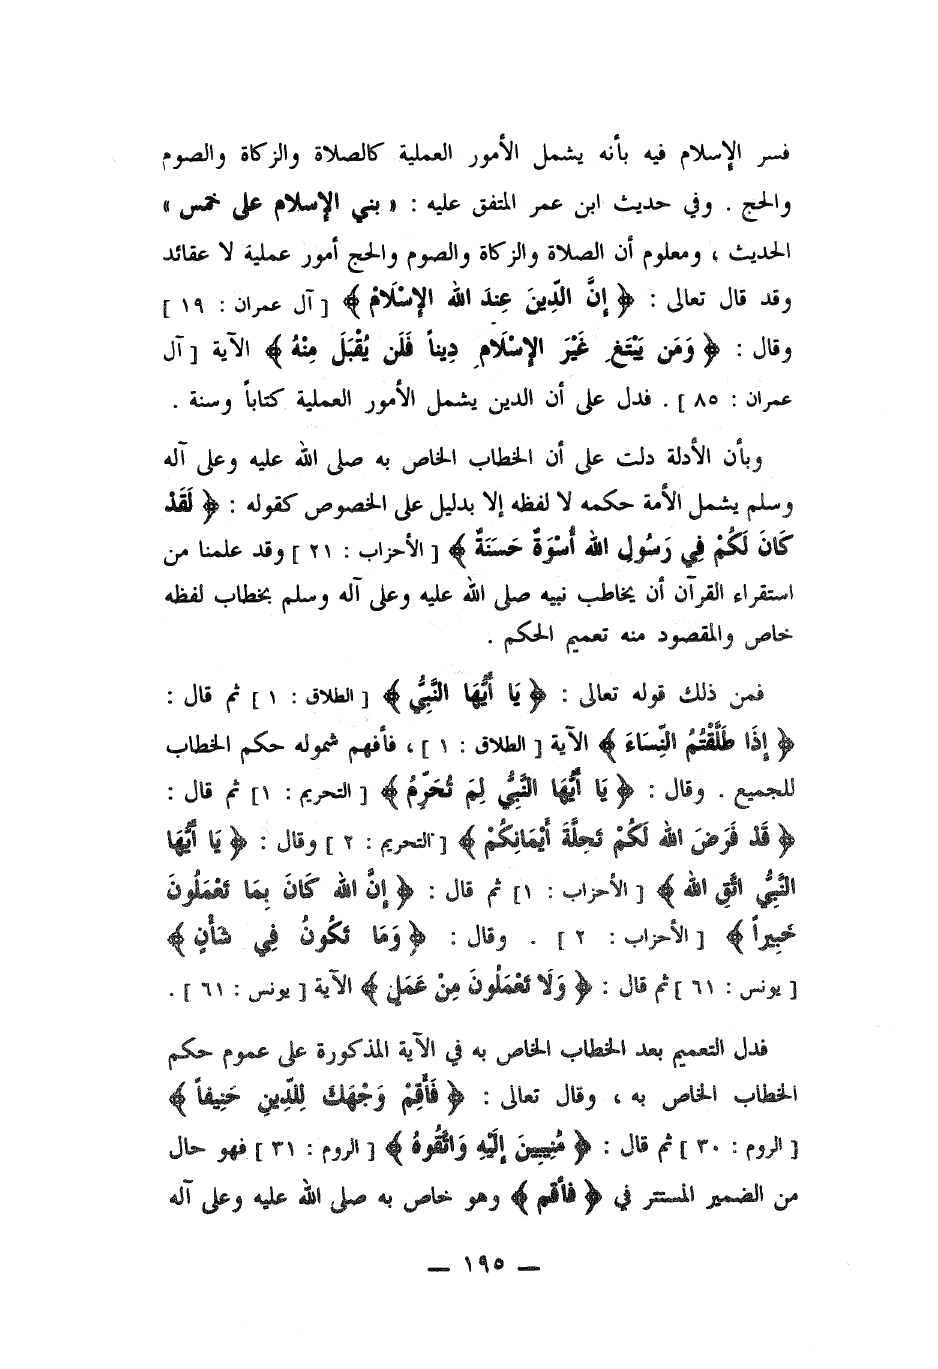 فسر الإسلام فيه بأنه يشمل الأمور العملية كالصلاة والزكاة والصوم
والحج . وفي حديث ابن عمر المتفق عليه : « بني الإسلام على خمس »
الحديث ، ومعلوم أن الصلاة والزكاة والصوم والحج أمور عملية لا عقائد
وقد قال تعالى : ﴿ إِنَّ الدِّينَ عِندَ الله الإِسْلَامُ ﴾ [ آل عمران : ١٩ ]
وقال : ﴿ وَمَن يَبْتَغِ غَيْرَ الإِسْلَامِ دِيناً فَلَن يُقْبَلَ مِنْهُ ﴾ الآية [ آل
عمران : ٨٥ ] . فدل على أن الدين يشمل الأمور العملية كتاباً وسنة .
وبأن الأدلة دلت على أن الخطاب الخاص به صلى الله عليه وعلى آله
وسلم يشمل الأمة حكمه لا لفظه إلا بدليل على الخصوص كقوله : ﴿ لَقَدْ
كَانَ لَكُمْ فِي رَسُولِ الله أُسْوَةٌ حَسَنَةٌ ﴾ [ الأحزاب : ٢١ ] وقد علمنا من
استقراء القرآن أن يخاطب نبيه صلى الله عليه وعلى آله وسلم بخطاب لفظه
خاص والمقصود منه تعميم الحكم .
فمن ذلك قوله تعالى : ﴿ يَا أَيُّهَا النَّبِيُّ ﴾ [ الطلاق : ١ ] ثم قال :
﴿ إِذَا طَلَّقْتُمُ النِّسَاءَ ﴾ الآية [ الطلاق : ١ ] ، فأفهم شموله حكم الخطاب
للجميع . وقال : ﴿ يَا أَيُّهَا النَّبِيُّ لِمَ تُحَرِّمُ ﴾ [ التحريم : ١] ثم قال :
﴿ قَدْ فَرَضَ الله لَكُمْ تَحِلَّةَ أَيْمَانِكُمْ ﴾ [ التحريم : ٢ ] وقال : ﴿ يَا أَيُّهَا
النَّبِيُّ اتَّقِ الله ﴾ [ الأحزاب : ١] ثم قال : ﴿ إِنَّ الله كَانَ بِمَا تَعْمَلُونَ
خَبِيراً ﴾ [ الأحزاب : ٢ ] . وقال : ﴿ وَمَا تَكُونُ فِي شَأْنٍ ﴾
[ يونس : ٦١ ] ثم قال : ﴿ وَلَا تَعْمَلُونَ مِنْ عَمَلٍ ﴾ الآية [ يونس : ٦١ ] .
فدل التعميم بعد الخطاب الخاص به في الآية المذكورة على عموم حكم
الخطاب الخاص به ، وقال تعالى : ﴿ فَأَقِمْ وَجْهَكَ لِلدِّينِ حَنِيفاً ﴾
[ الروم : ٣٠ ] ثم قال : ﴿ مُنِيبِينَ إِلَيْهِ وَاتَّقُوهُ ﴾ [ الروم : ٣١ ] فهو حال
من الضمير المستتر في ﴿ فأقم ﴾ وهو خاص به صلى الله عليه وعلى آله
— ١٩٥ —